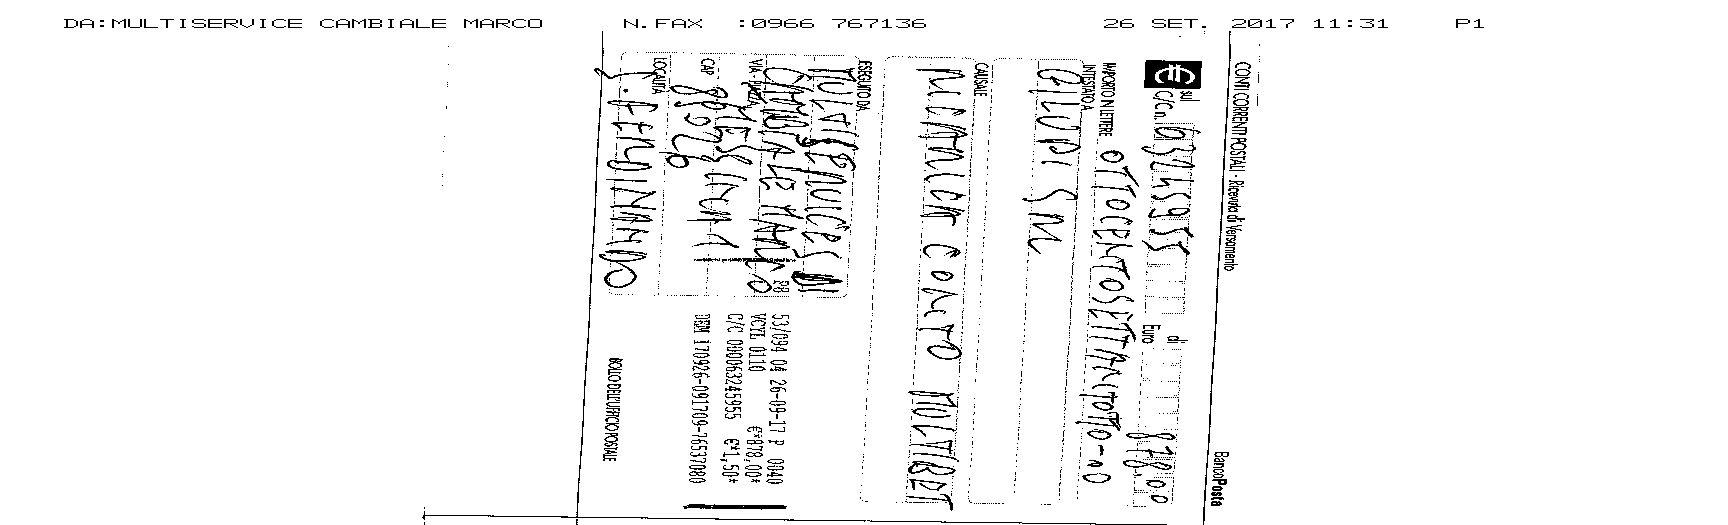 DA:MULTISERVICE CAMBIALE MARCO N.FAX :0966 767136 26 SET. 2017 11:31 P1
CONTI CORRENTI POSTALI - Ricevuta di Versamento BancoPosta
€ sul C/C n. 63245955 di Euro 878,00
IMPORTO IN LETTERE OTTOCENTOSETTANTOTTO-00
INTESTATO A
GILUPI SRL
CAUSALE
RICARICA CONTO MULTIBET
ESEGUITO DA
MULTISERVICES DI
CAMBIALE MARCO
VIA - PIAZZA
CAP 89026
LOCALITÀ
S. FERDINANDO
53/094 04 26-09-17 P 0040
VCYL 0110 €*878,00*
C/C 000063245955 €*1,50*
BOLLO DELL'UFFICIO POSTALE